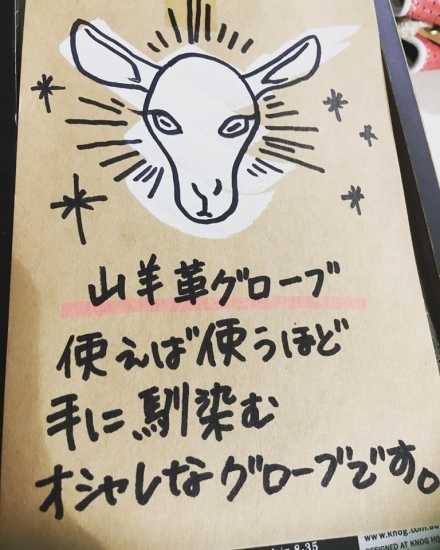 山羊革グローブ
使えば使うほど
手に馴染む
オシャレなグローブです。
www.knog.com.au
DESIGNED AT KNOG HO